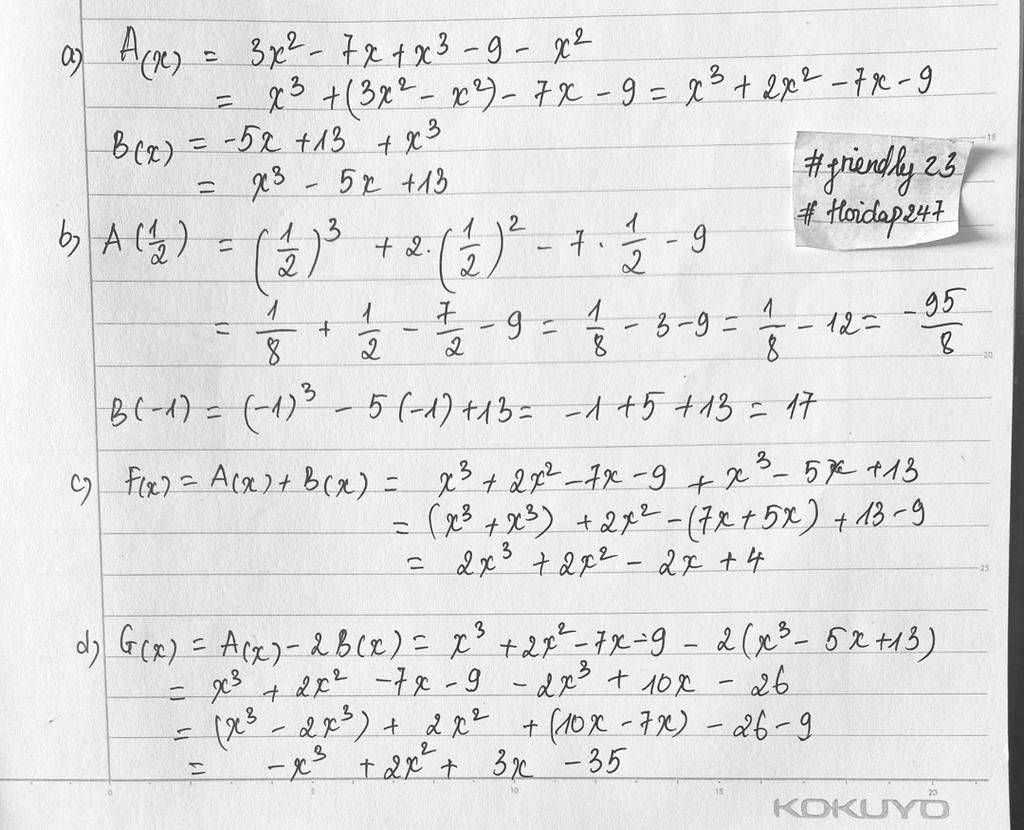 a) A(x) = 3x² - 7x + x³ - 9 - x²
= x³ + (3x² - x²) - 7x - 9 = x³ + 2x² - 7x - 9
B(x) = -5x + 13 + x³
= x³ - 5x + 13
#friendly23
# Hoidap247
b) A(1/2) = (1/2)³ + 2.(1/2)² - 7 . 1/2 - 9
= 1/8 + 1/2 - 7/2 - 9 = 1/8 - 3 - 9 = 1/8 - 12 = -95/8
B(-1) = (-1)³ - 5(-1) + 13 = -1 + 5 + 13 = 17
c) F(x) = A(x) + B(x) = x³ + 2x² - 7x - 9 + x³ - 5x + 13
= (x³ + x³) + 2x² - (7x + 5x) + 13 - 9
= 2x³ + 2x² - 2x + 4
d) G(x) = A(x) - 2B(x) = x³ + 2x² - 7x - 9 - 2(x³ - 5x + 13)
= x³ + 2x² - 7x - 9 - 2x³ + 10x - 26
= (x³ - 2x³) + 2x² + (10x - 7x) - 26 - 9
= -x³ + 2x² + 3x - 35
15
20
25
0 5 10 15 20
KOKUYO